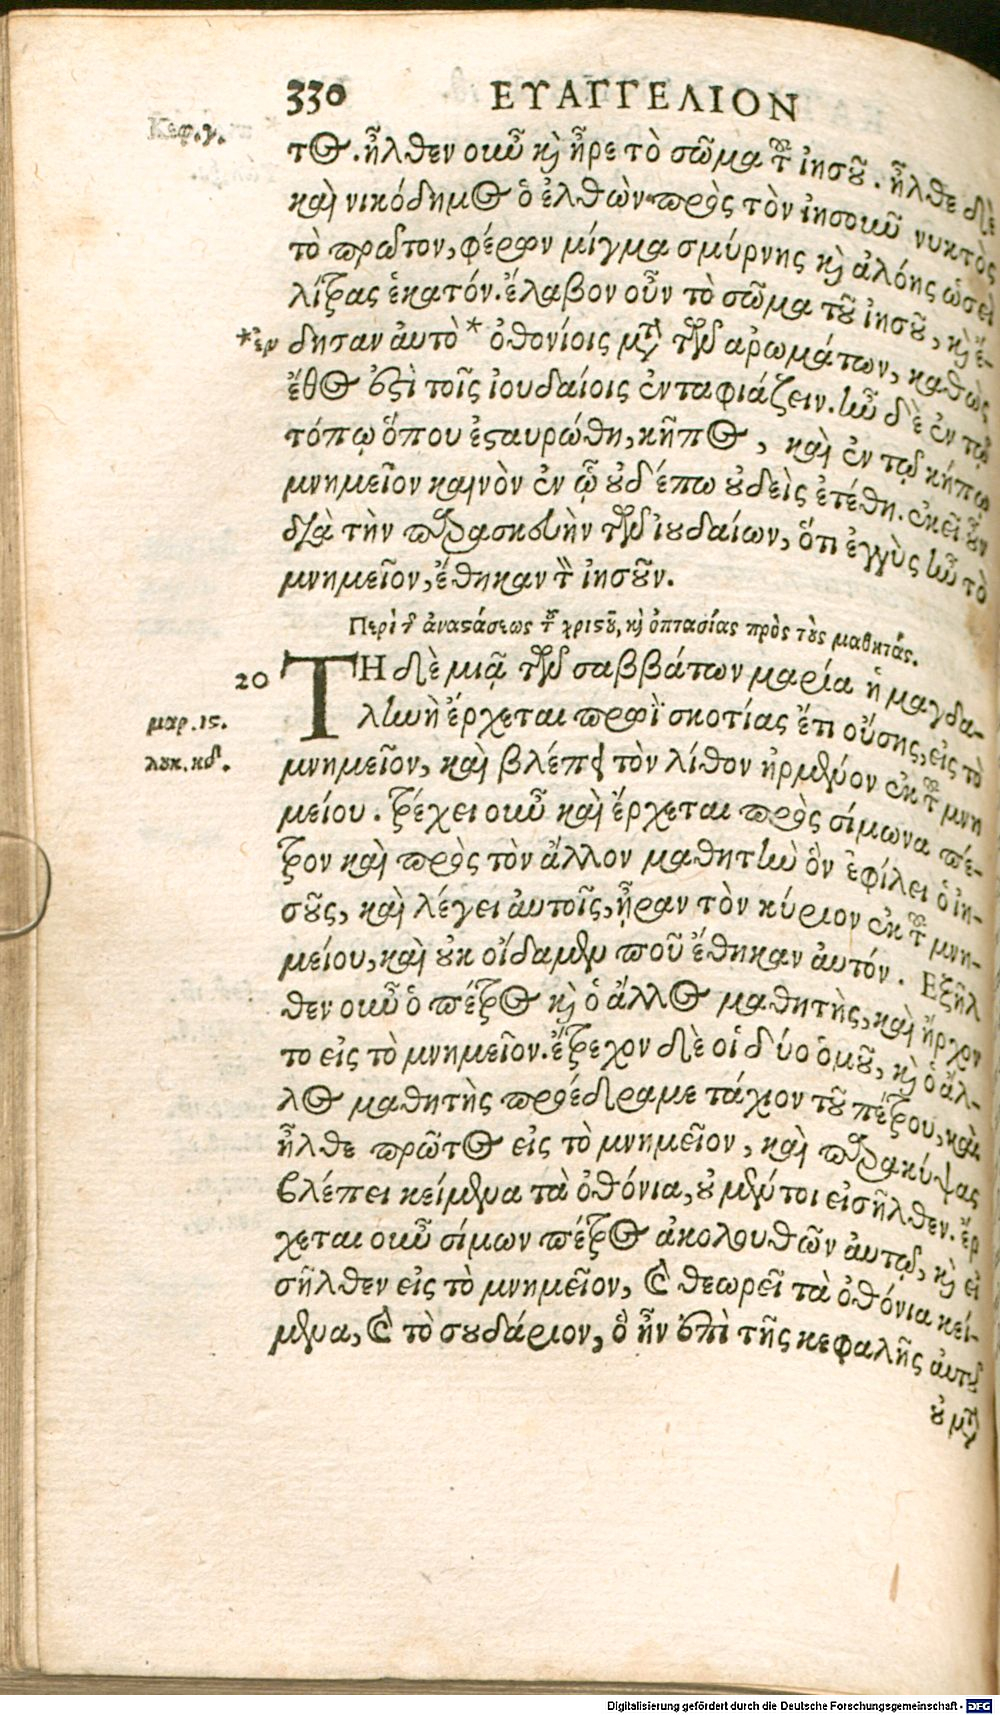 330 ΕΥΑΓΓΕΛΙΟΝ
τος. ἦλθεν οὖν κὶ ἦρε τὸ σῶμα τοῦ ἰησοῦ. ἦλθε δὲ
καὶ νικόδημος ὁ ἐλθὼν πρὸς τὸν ἰησοῦν νυκτὸς
τὸ πρῶτον, φέρων μίγμα σμύρνης κὶ ἀλόης ὡσεὶ
λίτρας ἑκατόν. ἔλαβον οὖν τὸ σῶμα τοῦ ἰησοῦ, κὶ ἔ-
*ἐν δησαν ἀυτὸ* ὀθονίοις μετὰ τῶν αρωμάτων, καθὼς
ἔθος ἐστὶ τοῖς ἰουδαίοις ἐνταφιάζειν. ἦν δὲ ἐν τῷ
τόπῳ ὅπου ἐσταυρώθη, κῆπος, καὶ ἐν τῷ κήπῳ
μνημεῖον καινὸν ἐν ᾧ οὐδέπω οὐδεὶς ἐτέθη. ἐκεῖ οὖν
διὰ τὴν παρασκευὴν τῶν ἰουδαίων, ὅτι ἐγγὺς ἦν τὸ
μνημεῖον, ἔθηκαν τὸν ἰησοῦν.
Περὶ τῆς ἀναστάσεως τοῦ χριστοῦ, κὶ ὀπτασίας πρὸς τοὺς μαθητάς.
20 ΤΗ δὲ μιᾷ τῶν σαββάτων μαρία ἡ μαγδα-
μαρ. ις. ληνὴ ἔρχεται πρωῒ σκοτίας ἔτι οὔσης, εἰς τὸ
λουκ. κδ. μνημεῖον, καὶ βλέπει τὸν λίθον ἠρμένον ἐκ τοῦ μνη
μείου. τρέχει οὖν καὶ ἔρχεται πρὸς σίμωνα πέ-
τρον καὶ πρὸς τὸν ἄλλον μαθητὴν ὃν ἐφίλει ὁ ἰη-
σοῦς, καὶ λέγει ἀυτοῖς, ἦραν τὸν κύριον ἐκ τοῦ μνη-
μείου, καὶ οὐκ οἴδαμεν ποῦ ἔθηκαν ἀυτόν. Εξῆλ
θεν οὖν ὁ πέτρος κὶ ὁ ἄλλος μαθητὴς, καὶ ἤρχον
το εἰς τὸ μνημεῖον. ἔτρεχον δὲ οἱ δύο ὁμοῦ, κὶ ὁ ἄλ-
λος μαθητὴς προέδραμε τάχιον τοῦ πέτρου, καὶ
ἦλθε πρῶτος εἰς τὸ μνημεῖον, καὶ παρακύψας
βλέπει κείμενα τὰ ὀθόνια, οὐ μέντοι εἰσῆλθεν. ἔρ
χεται οὖν σίμων πέτρος ἀκολουθῶν ἀυτῷ, κὶ εἰ
σῆλθεν εἰς τὸ μνημεῖον, καὶ θεωρεῖ τὰ ὀθόνια κεί-
μενα, καὶ τὸ σουδάριον, ὃ ἦν ἐπὶ τῆς κεφαλῆς ἀυτοῦ
οὐ μετὰ
Digitalisierung gefördert durch die Deutsche Forschungsgemeinschaft - DFG